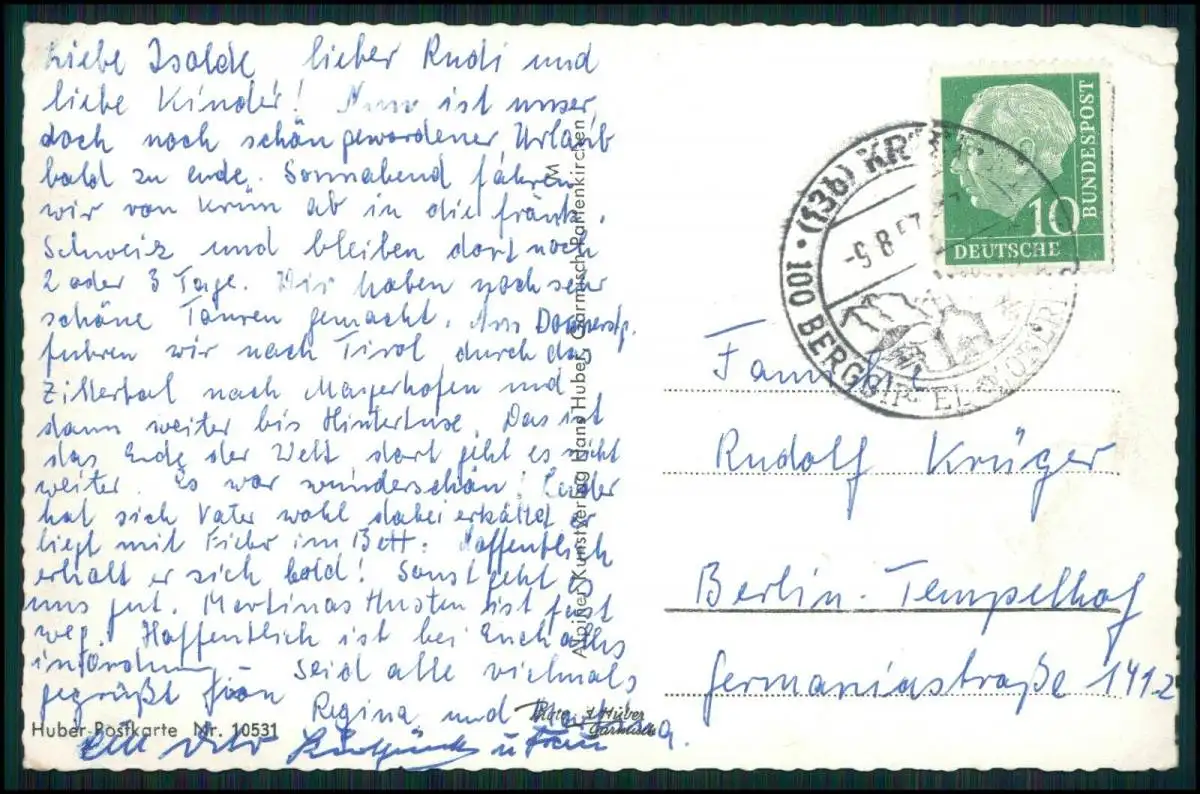 Liebe Isolde lieber Rudi und
liebe Kinder! Nun ist unser
doch noch schön gewordener Urlaub
bald zu ende. Sonnabend fahren
wir von Krün ab in die fränk.
Schweiz und bleiben dort noch
2 oder 3 Tage. Wir haben noch sehr
schöne Touren gemacht. Am Donnerstg.
fuhren wir nach Tirol durch das
Zillertal nach Mayerhofen und
dann weiter bis Hintertuxe. Das ist
das Ende der Welt dort geht es nicht
weiter. Es war wunderschön! Leider
hat sich Vater wohl dabei erkältet er
liegt mit Fieber im Bett. Hoffentlich
erholt er sich bald! Sonst geht es
uns gut. Martinas Husten ist fast
weg. Hoffentlich ist bei Euch alles
in Ordnung – Seid alle vielmals
gegrüßt von
Regina und
u Frau
Huber-Postkarte Nr. 10531
Foto: H. Huber
Garmisch
Alpiner Kunstverlag Hans Huber, Garmisch-Partenkirchen
M
(13b) KR
-9.8.57
100 BERGGIPFEL
10
DEUTSCHE
BUNDESPOST
Familie
Rudolf Krüger
Berlin-Tempelhof
Germaniastraße 141.2